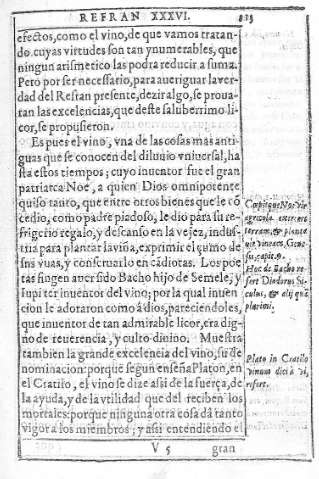 REFRAN XXXVI.
efectos, como el vino, de que vamos tratan-
do. cuyas virtudes son tan ynumerables, que
ningun arismetico las podra reducir a suma.
Pero por ser necessario, para aueriguar la ver-
dad del Refran presente, dezir algo, se proua-
ran las excelencias, que deste saluberrimo li-
cor, se propusieron.
Es pues el vino, vna de las cosas mas anti-
guas que se conocen del diluuio vniuersal, ha
sta estos tiempos; cuyo inuentor fue el gran
patriarca Noe, a quien Dios omnipotente
quiso tanto, que entre otros bienes que le cõ
cedio, como padre piadoso, le dio para su re-
frigerio regalo, y descanso en la vejez, indus-
tria para plantar la viña, exprimir el çumo de
sus vuas, y conseruarlo en cãdiotas. Los poe
tas fingen auer sido Bacho hijo de Semele, y
Iupiter inuentor del vino; por la qual inuen
cion le adoraron como à dios, pareciendoles,
que inuentor de tan admirable licor, era dig-
no de reuerencia, y culto diuino. Muestra
tambien la grande excelencia del vino, su de
nominacion: porque segun enseña Platon, en
el Cratilo, el vino se dize assi de la fuerça, de
la ayuda, y de la vtilidad que del reciben los
mortales: porque ninguna otra cosa dà tanto
vigor a los miembros; y assi entendiendo el
V 5 gran
Cœpitque Noe vir
agricola exercere
terram, & planta
uit vineam, Gene
su, cap. 9.
Hoc de Bacho re
fert Diodorus Si-
culus, & alij quã
plurimi.
Plato in Cratilo
vinum dici à vi,
refert.